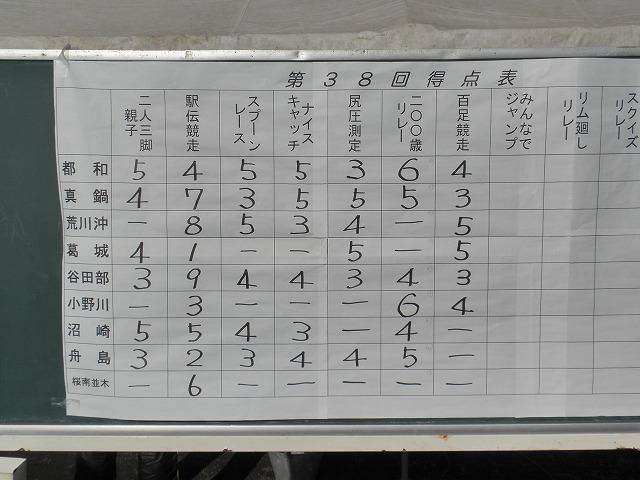 第38回得点表
親子二人三脚 駅伝競走 スプーンレース ナイスキャッチ 尻圧測定 二〇〇歳リレー 百足競走 みんなでジャンプ リム廻しリレー スクイズリレー
都和 5 4 5 5 3 6 4
真鍋 4 7 3 5 5 5 3
荒川沖 － 8 5 3 4 － 5
葛城 4 1 － － 5 － 5
谷田部 3 9 4 4 3 4 3
小野川 － 3 － － － 6 4
沼崎 5 5 4 3 － 4 －
舟島 3 2 3 4 4 5 －
桜南並木 － 6 － － － － －